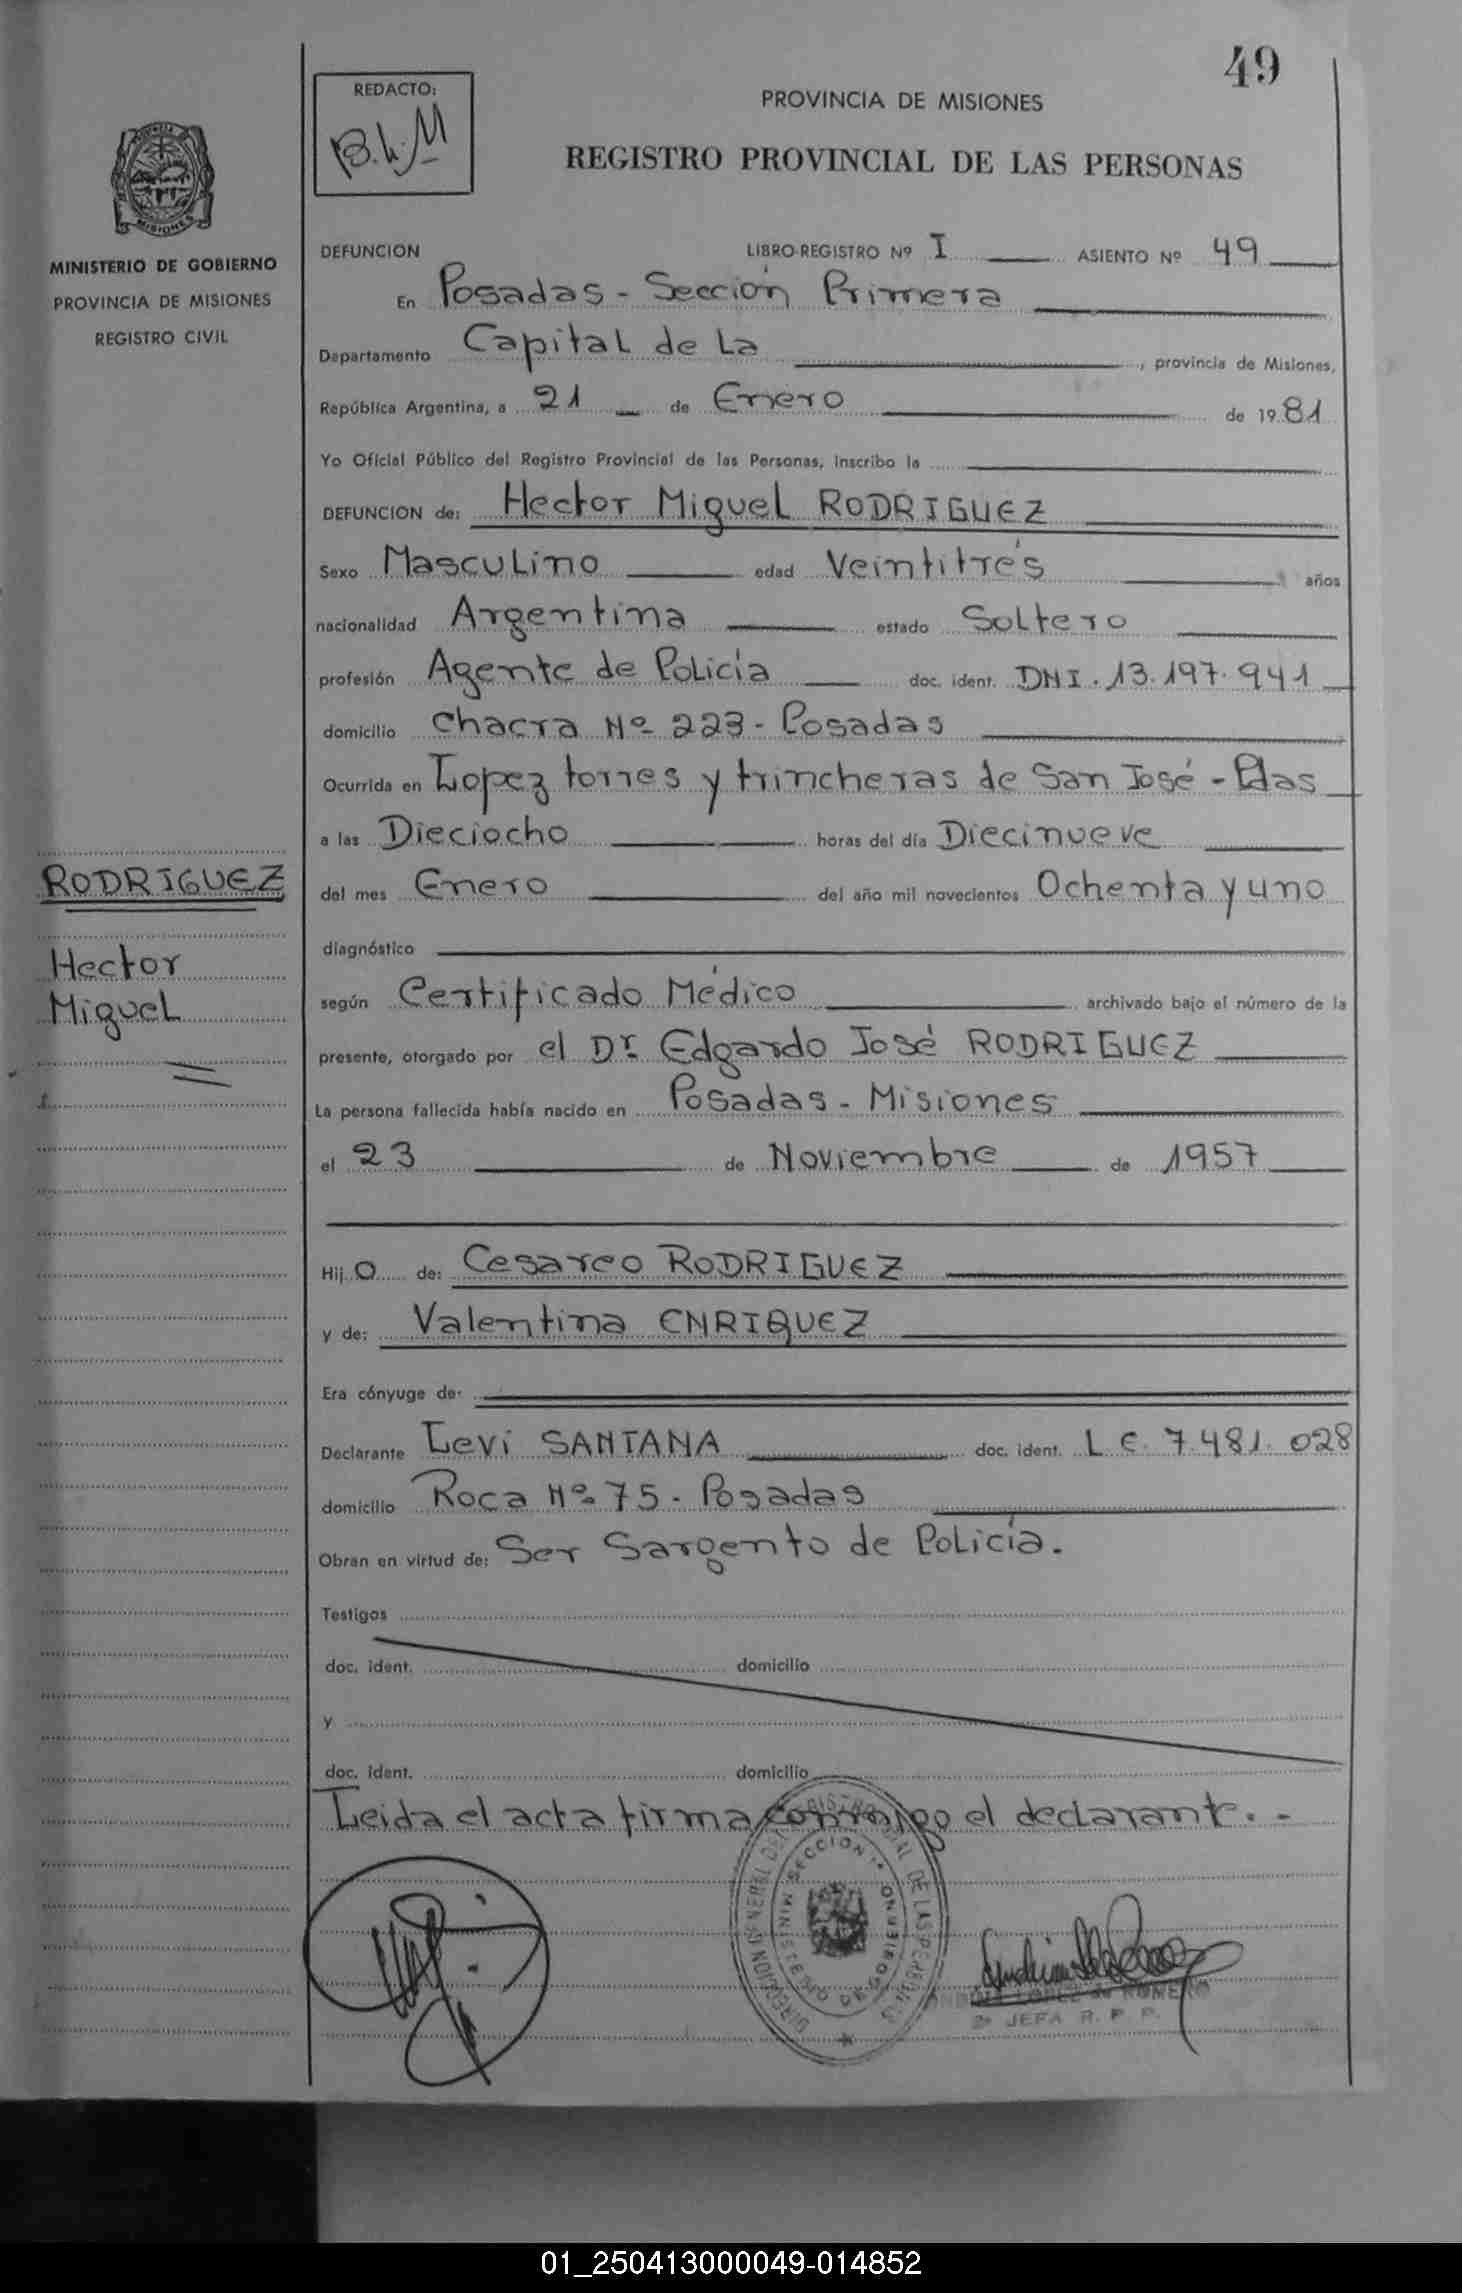 49
REDACTO:
B.L.M
PROVINCIA DE MISIONES
REGISTRO PROVINCIAL DE LAS PERSONAS
MISIONES
MINISTERIO DE GOBIERNO
PROVINCIA DE MISIONES
REGISTRO CIVIL
DEFUNCION LIBRO-REGISTRO Nº I ASIENTO Nº 49
En Posadas - Sección Primera
Departamento Capital de La , provincia de Misiones,
República Argentina, a 21 de Enero de 1981
Yo Oficial Público del Registro Provincial de las Personas, inscribo la
DEFUNCION de: Hector Miguel RODRIGUEZ
Sexo Masculino edad Veintitrés años
nacionalidad Argentina estado Soltero
profesión Agente de Policía doc. ident. DNI. 13.197.941
domicilio Chacra Nº 223 - Posadas
Ocurrida en Lopez torres y trincheras de San José - Pdas
a las Dieciocho horas del día Diecinueve
del mes Enero del año mil novecientos Ochenta y uno
diagnóstico
según Certificado Médico archivado bajo el número de la
presente, otorgado por el Dr. Edgardo José RODRIGUEZ
La persona fallecida había nacido en Posadas - Misiones
el 23 de Noviembre de 1957
Hij O de: Cesareo RODRIGUEZ
y de: Valentina ENRIQUEZ
Era cónyuge de:
Declarante Leví SANTANA doc. ident. L E. 7.481.028
domicilio Roca Nº 75 - Posadas
Obran en virtud de: Ser Sargento de Policía.
Testigos
doc. ident. domicilio
y
doc. ident. domicilio
Leida el acta firma conmigo el declarante. -
RODRIGUEZ
Hector
Miguel
DIRECCION GENERAL DEL REGISTRO PROVINCIAL DE LAS PERSONAS
SECCION 1ª
MINISTERIO DE GOBIERNO
LOPEZ de ROMERO
JEFA R. P. P.
01_250413000049-014852